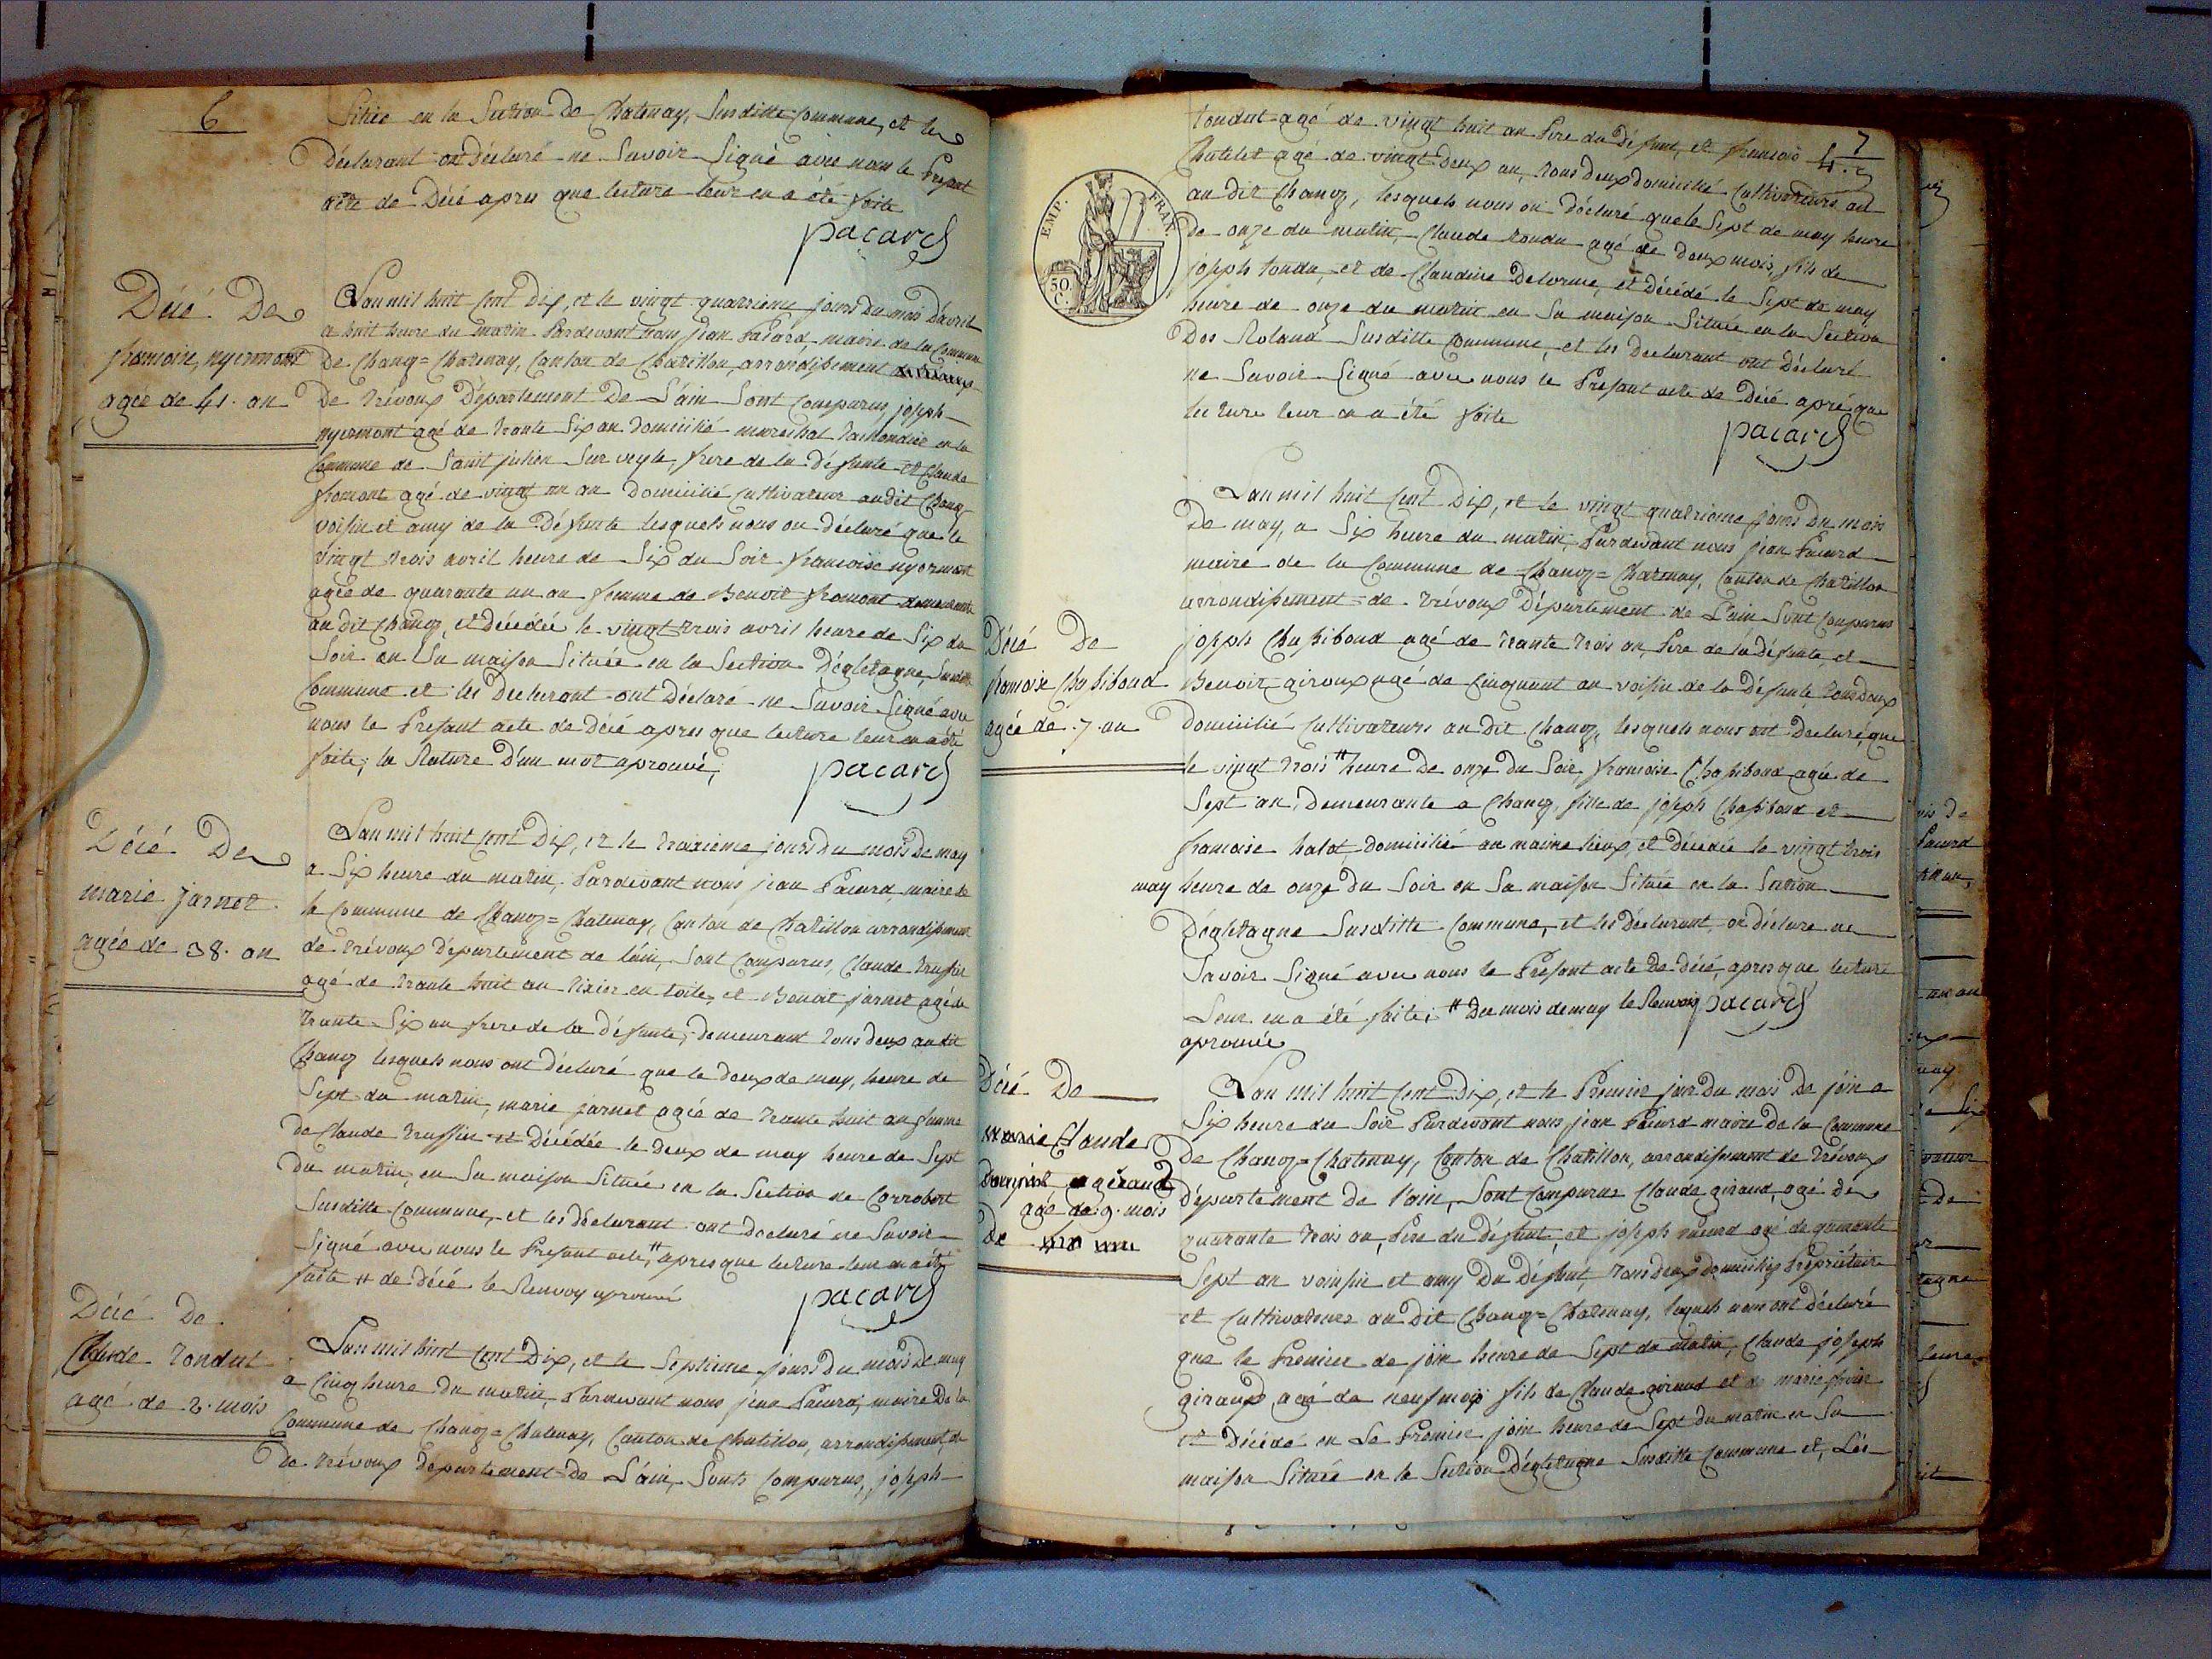 6
Sitiée en la Section De Chatenay, Susditte Commune, et les
Déclarant on Déclaré ne Savoir Signé avec nous le Presant
acte de Décé apres que lecture leur en a été faite
pacard
Décé De
francoise nyermont
agée de 41. an
Lan mil huit Cent Dix, et le vingt quatrieme jours Du mois Davril
a huit heure du matin Pardevant nous jean Pacard, maire de la Commune
De Chanoz=Chatenay, Canton de Chatillon, arrondissement
De Trévoux Département De L'ain Sont Comparus, joseph
nyermont agé de trante Six an Domicilié marechal en la
Commune de Saint julien Sur veyle, frere de la Défunte et Claude
fromont agé de vingt un an Domicilié Cultivateur audit Chanoz
voisin et amy de la Défunte lesquels nous on déclaré que le
vingt trois avril heure de Six du Soir francoise nyermont
agée de quarante un an femme de Benoit fromont demeurante
au dit Chanoz, et Décédée le vingt trois avril heure de Six du
Soir en Sa maison Située en la Section Dégletagne, Susditte
Commune et les Declarant ont Déclaré ne Savoir Signé avec
nous le Presant acte de Décé apres que lecture leur en a été
faite; la Rature D'un mot aprouvé,
pacard
Décé De
marie jarnet
agée de 38. an
Lan mil huit Cent Dix, et le troisieme jours du mois De may
a Six heure du matin, Pardevant nous jean Pacard, maire de
la Commune de Chanoz=Chatenay, Canton de Chatillon arrondissement
de Trévoux Département de lain, Sont Comparus, Claude truffier
agé de trante huit an tixier en toile, et Benoit jarnet agé de
trante Six an frere de la défunte, demeurant tous deux audit
Chanoz lesquels nous ont déclaré que le deux de may, heure de
Sept du matin, marie jarnet agée de trante huit an femme
de Claude truffier et Décédée le deux de may heure de Sept
du matin, en Sa maison Située en la Section de Corrobert
Susditte Commune, et les déclarant ont declaré ne Savoir
Signé avec nous le Presant acte, # apres que lecture leur en a été
faite # de décé le Renvoy aprouvé
pacard
Décé De
Claude tondut
agé de 2. mois
Lan mil huit Cent Dix, et le Septieme jours Du mois De may
a Cinq heure Du matin, Pardevant nous jean Pacard, maire De la
Commune de Chanoz=Chatenay, Canton de Chatillon, arrondissement de
De Trévoux Département De L'ain, Sont Comparus, joseph
7
EMP. FRAN.
50.
C.
tondut agé de vingt huit an Pere du Défunt, et francois
Chatelet agé de vingt deux an, tous deux domicilié Cultivateurs au
au dit Chanoz, lesquels nous on déclaré que le Sept de may heure
de onze du matin, Claude tondu agé de deux mois, fils de
joseph tondu, et de Claudine Delorme, et Décédé le Sept de may
heure de onze du matin en Sa maison Située en la Section
Des Roland Susditte Commune, et les Declarant ont Déclaré
ne Savoir Signé avec nous le Presant acte de Décé apré que
lecture leur en a été faite
pacard
Décé De
francoise Chassiboud
agée de 7 an
Lan mil huit Cent Dix, et le vingt quatrieme jours Du mois
De may, a Six heure du matin, Pardevant nous jean Pacard
maire de la Commune de Chanoz=Chatenay, Canton de Chatillon
arrondissement de Trévoux Département de L'ain Sont Comparus
joseph Chassiboud agé de trante trois an, Pere de la défunte, et
Benoit giroux agé de Cinquant an voisin de la Défunte tous deux
domicilié Cultivateurs au dit Chanoz, lesquels nous ont Declaré, que
le vingt trois # heure De onze du Soir, francoise Chassiboud agée de
Sept an, Demeurante a Chanoz, fille de joseph Chassiboud et
francoise halat, domicilié au maime lieux, et décédée le vingt trois
may heure de onze du Soir en Sa maison Située en la Section
Dégletagne Susditte Commune, et les Déclarant, on déclare ne
Savoir Signé avec nous le Presant acte De Décé, apres que lecture
Leur en a été faite; # Du mois de may le Renvoy pacard
aprouvée
Décé De
Claude
giraud
agé de 9. mois
Lan mil huit Cent Dix, et le Premier jour Du mois De join a
Six heure du Soir Pardevant nous jean Pacard maire De la Commune
De Chanoz=Chatenay, Canton de Chatillon, arrondissement de Trévoux
département De l'ain, Sont Comparus Claude giraud, agé de
quarante trois an, Pere du défunt, et joseph pacard agé de quarante
Sept an voinsin et amy Du défunt, tous deux domiciliés Propriétaire
et Cultivateurs au Dit Chanoz=Chatenay, lequels nous ont déclaré
que le Premier de join heure de Sept du matin, Claude joseph
giraud, agé de neuf mois fils de Claude giraud et de marie
et Décédé en Le Premier join heure de Sept du matin en Sa
maison Située en la Section Dégletagne Susditte Commune et, Les